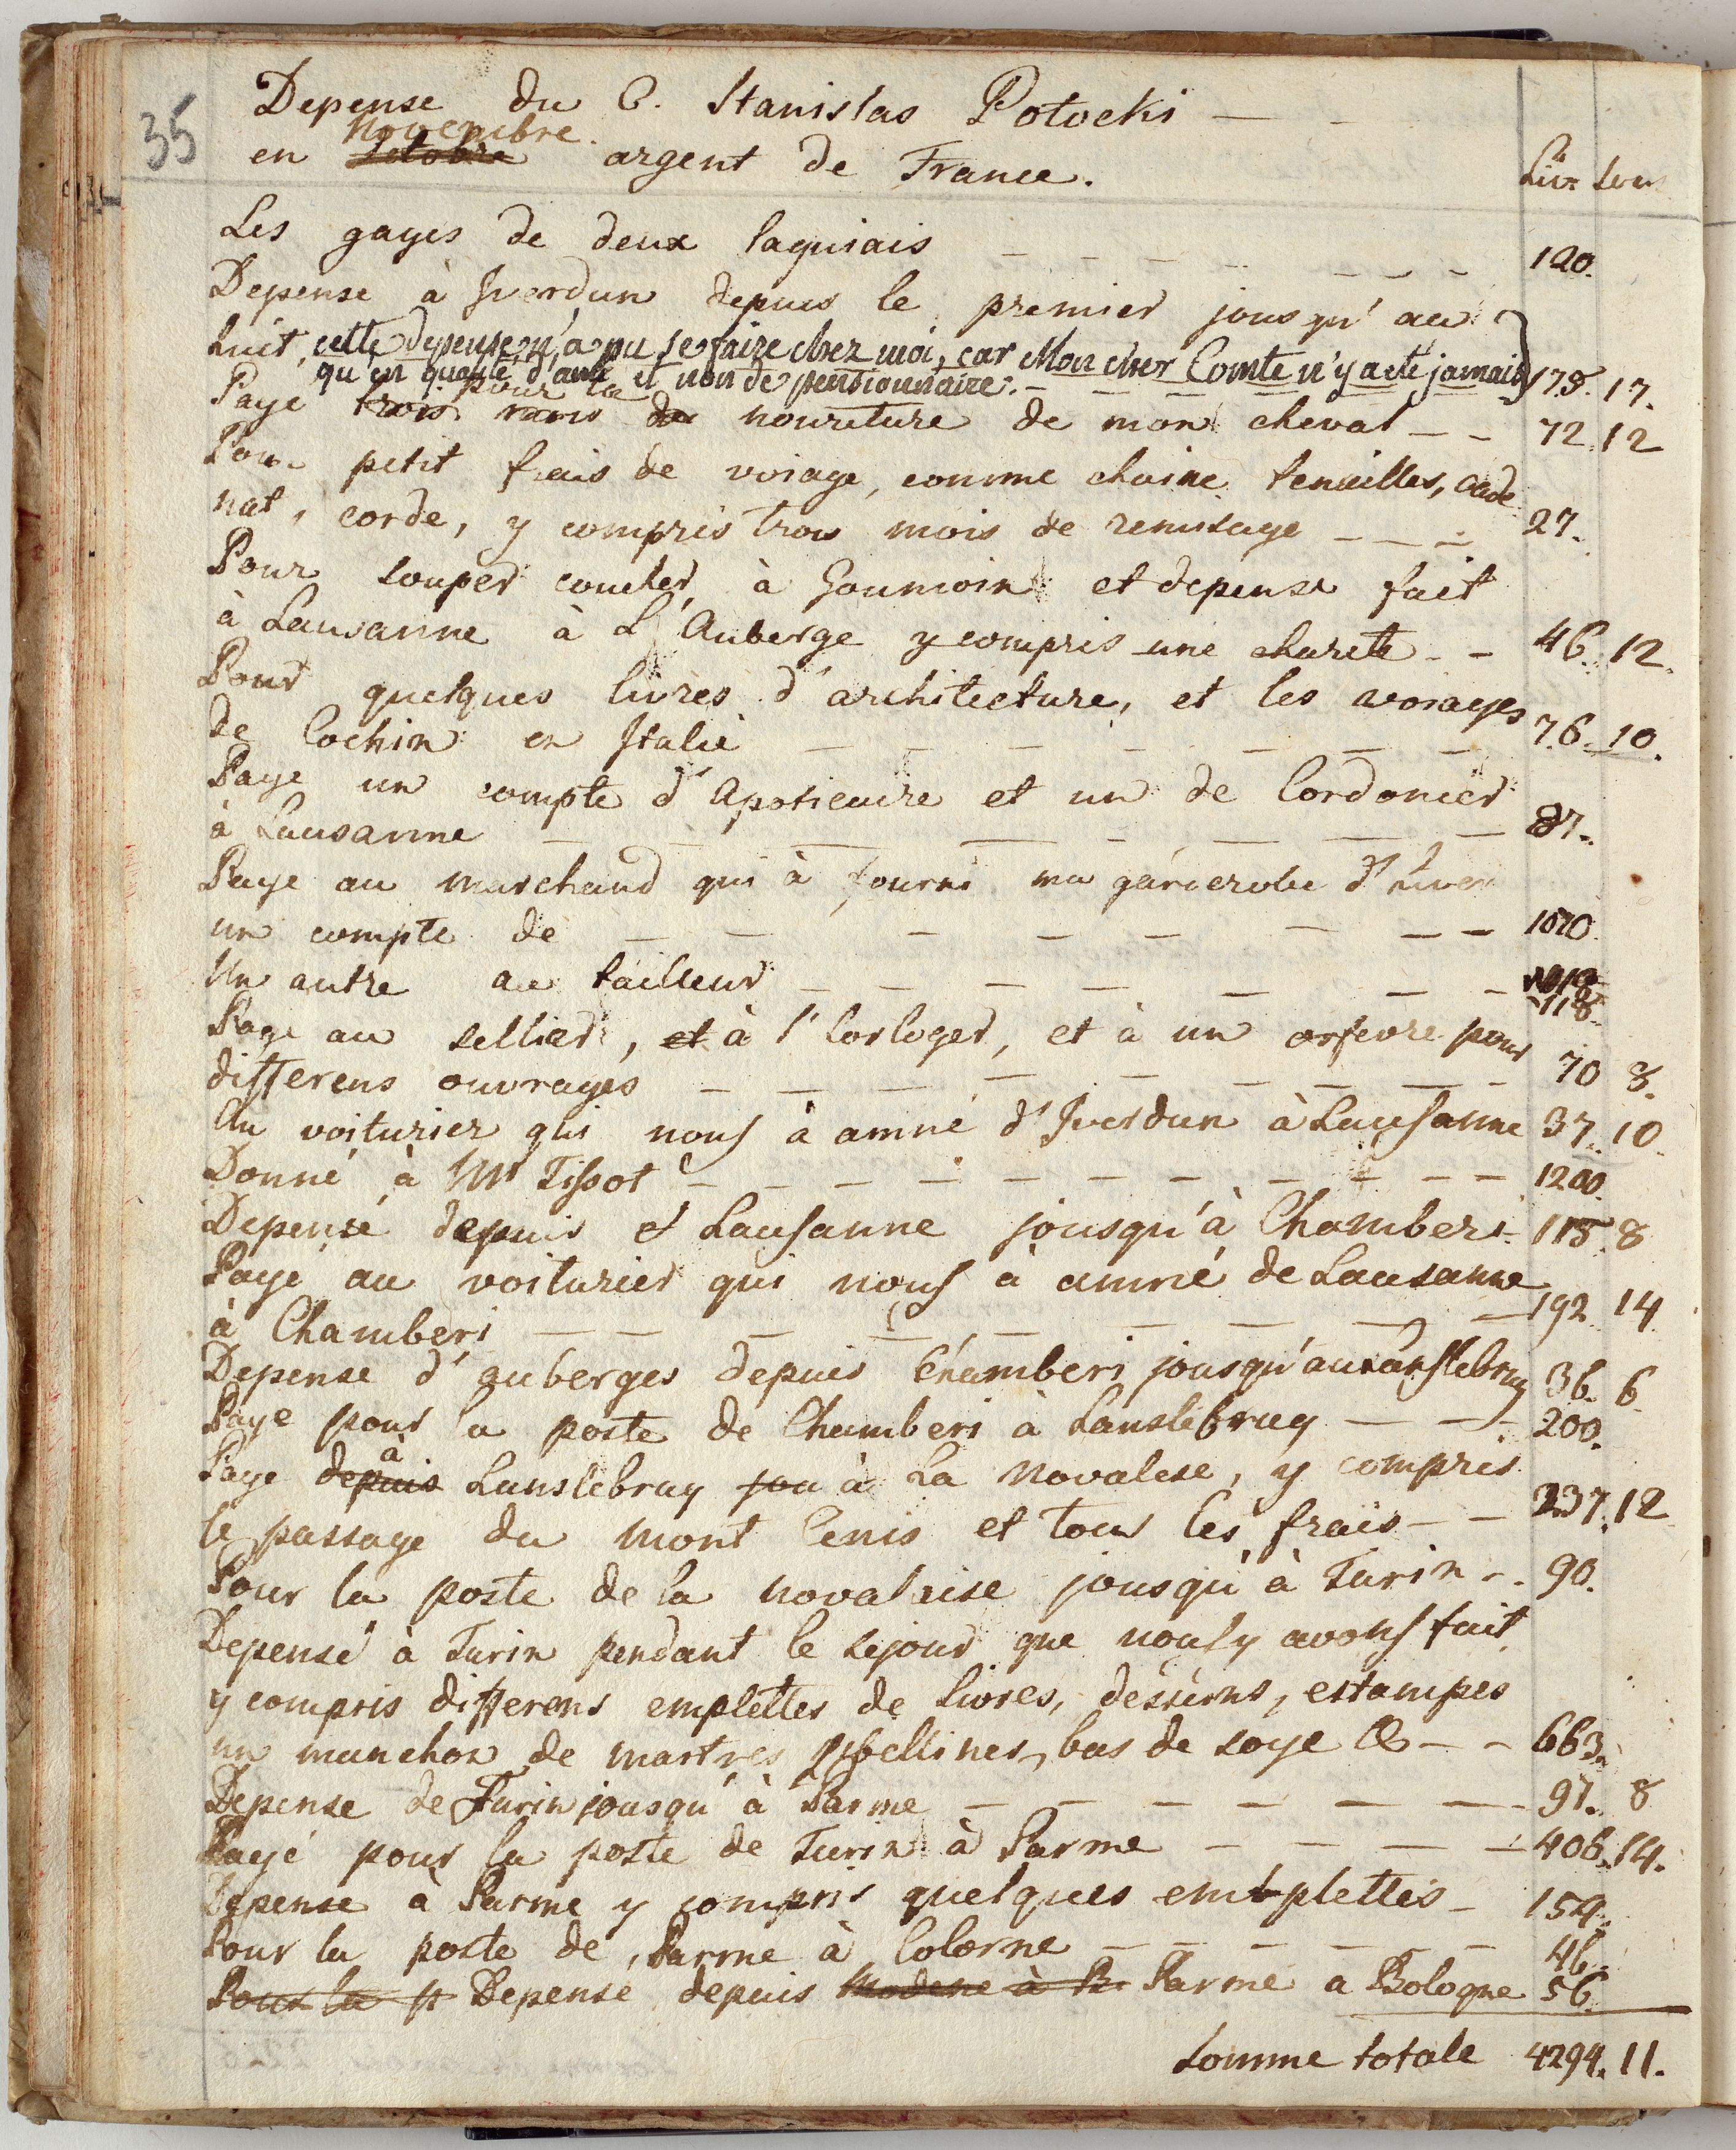 35
Depense du C. Stanislas Potocki
Novembre
en octobre argent de France.
Liv. sous
Les gages de deux laquiais 120.
Depense à Iverdun depuis le premier jousqu'au
huit, cette depense n'a pu se faire chez moi, car Mon cher Comte n'y a eté jamais 175. 17.
qu'en qualité d'ami et non de pensionnaire.
pour la
Paye trois mois de nouriture de mon cheval 72. 12
Pour petit frais de voiage, comme chaine tenailles, cade
nat, corde, y compris trois mois de remisage 27.
Pour souper coucher, à Goumoin et depense fait
à Lausanne à L'Auberge y compris une charete 46. 12.
Pour quelques livres d'architecture, et les voiages
de Cochin en Italie 76. 10.
Paye un compte d'Apoticaire et un de Cordonier
à Lausanne 87.
Paye au marchand qui à fourni ma garderobe d'hiver
un compte de 1070.
Un autre au tailleur
118.
Paye au sellier, et à l'horloger, et à un orfevre pour
differens ouvrages 70 8.
Au voiturier qui nous à amné d'Iverdun à Lausanne 37. 10.
Donné à Mr Tissot 1200.
Depensé depuis Lausanne jousqu'à Chamberi 115. 8
Payé au voiturier qui nous à amné de Lausanne
à Chamberi 192. 14
Depense d'auberges depuis Chamberi jousqu'au Lanslebrug 36. 6
Paye pour la poste de Chamberi à Lanslebrug 200.
à
Paye depuis Lanslebrug jou à La Novalese, y compris
le passage du Mont Cenis et tous les frais 237. 12
Pour la poste de la Novalaise jousqu'à Turin 90.
Depensé à Turin pendant le sejour que nous y avons fait,
y compris differens emplettes de livres, desseins, estampes
un manchon de martres zibellines, bas de soye & 663.
Depense de Turin jousqu'à Parme 97. 8
Payé pour la poste de Turin à Parme 406. 14.
Depense à Parme y compris quelques emplettes 154.
Pour la poste de Parme à Colorne 46.
Pour la p Depense depuis Modene à B Parme a Bologne 56
Somme totale 4294. 11.